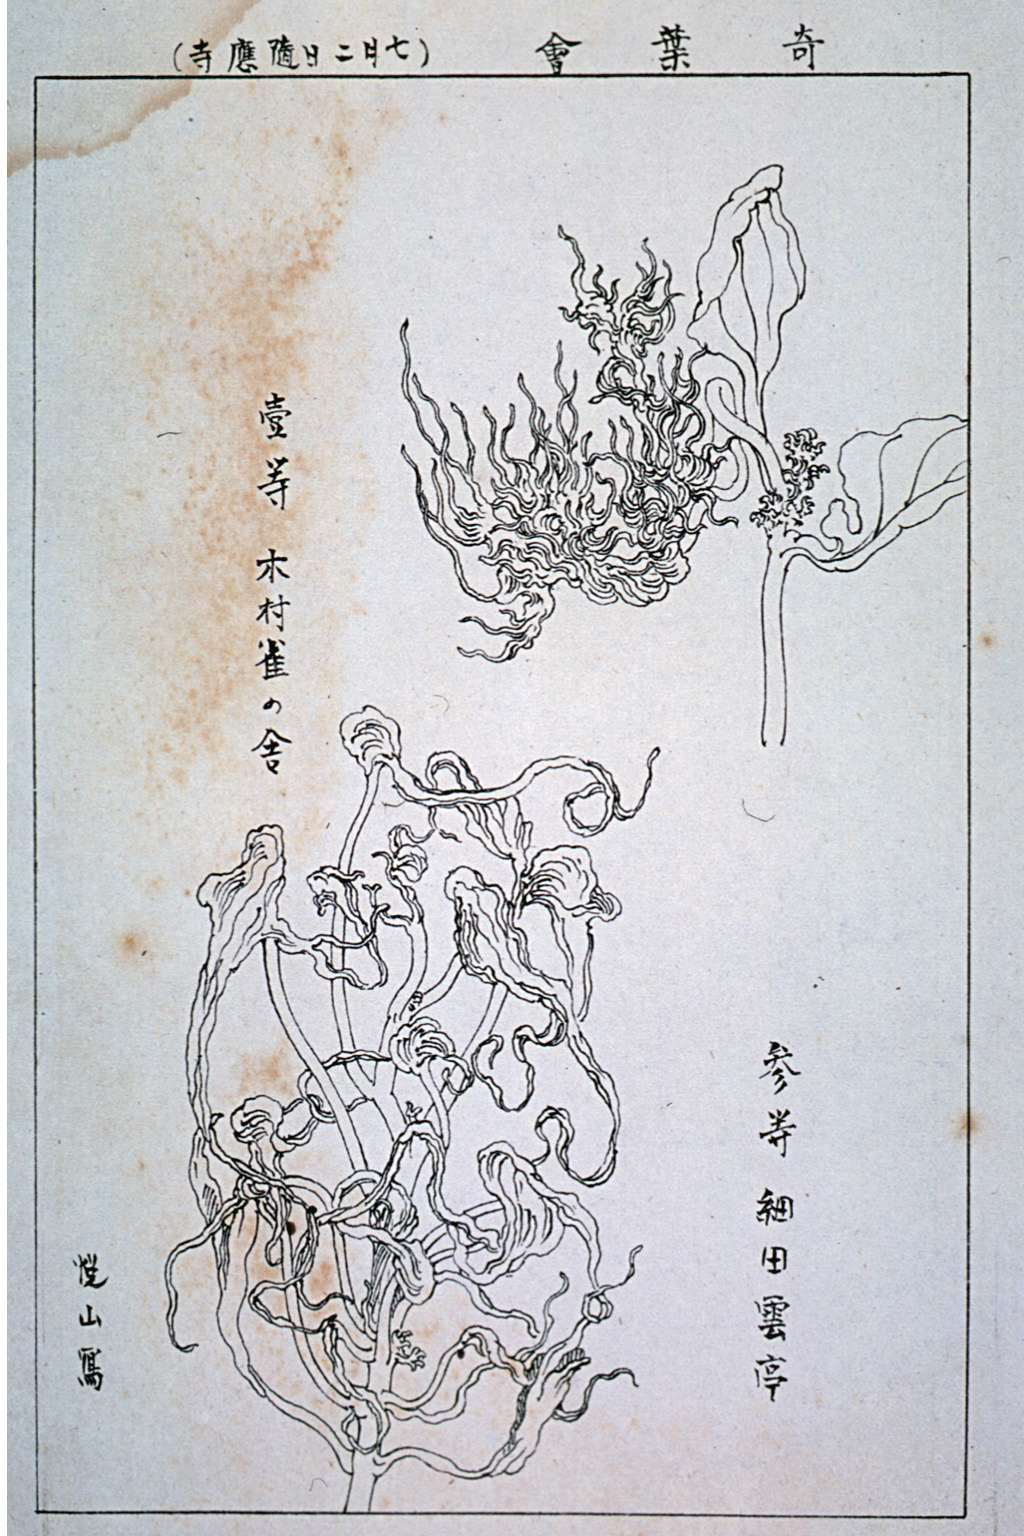 奇葉會
(七月二日隨應寺)
參等 細田雲亭
壹等 木村雀の舍
悦山寫